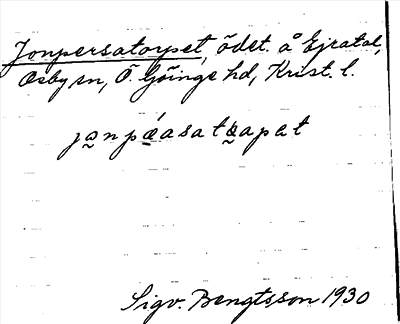 Jonpersatorpet, ödet. å Ejratal,
Osby sn, Ö. Göinge hd, Krist. l.
ja̰npǽasatɐ̰apet
Sigv. Bengtsson 1930